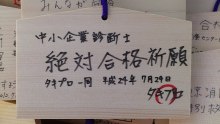 みんなが
中小企業診断士
絶対合格祈願
タキプロ一同 平成29年7月29日
タキプロ